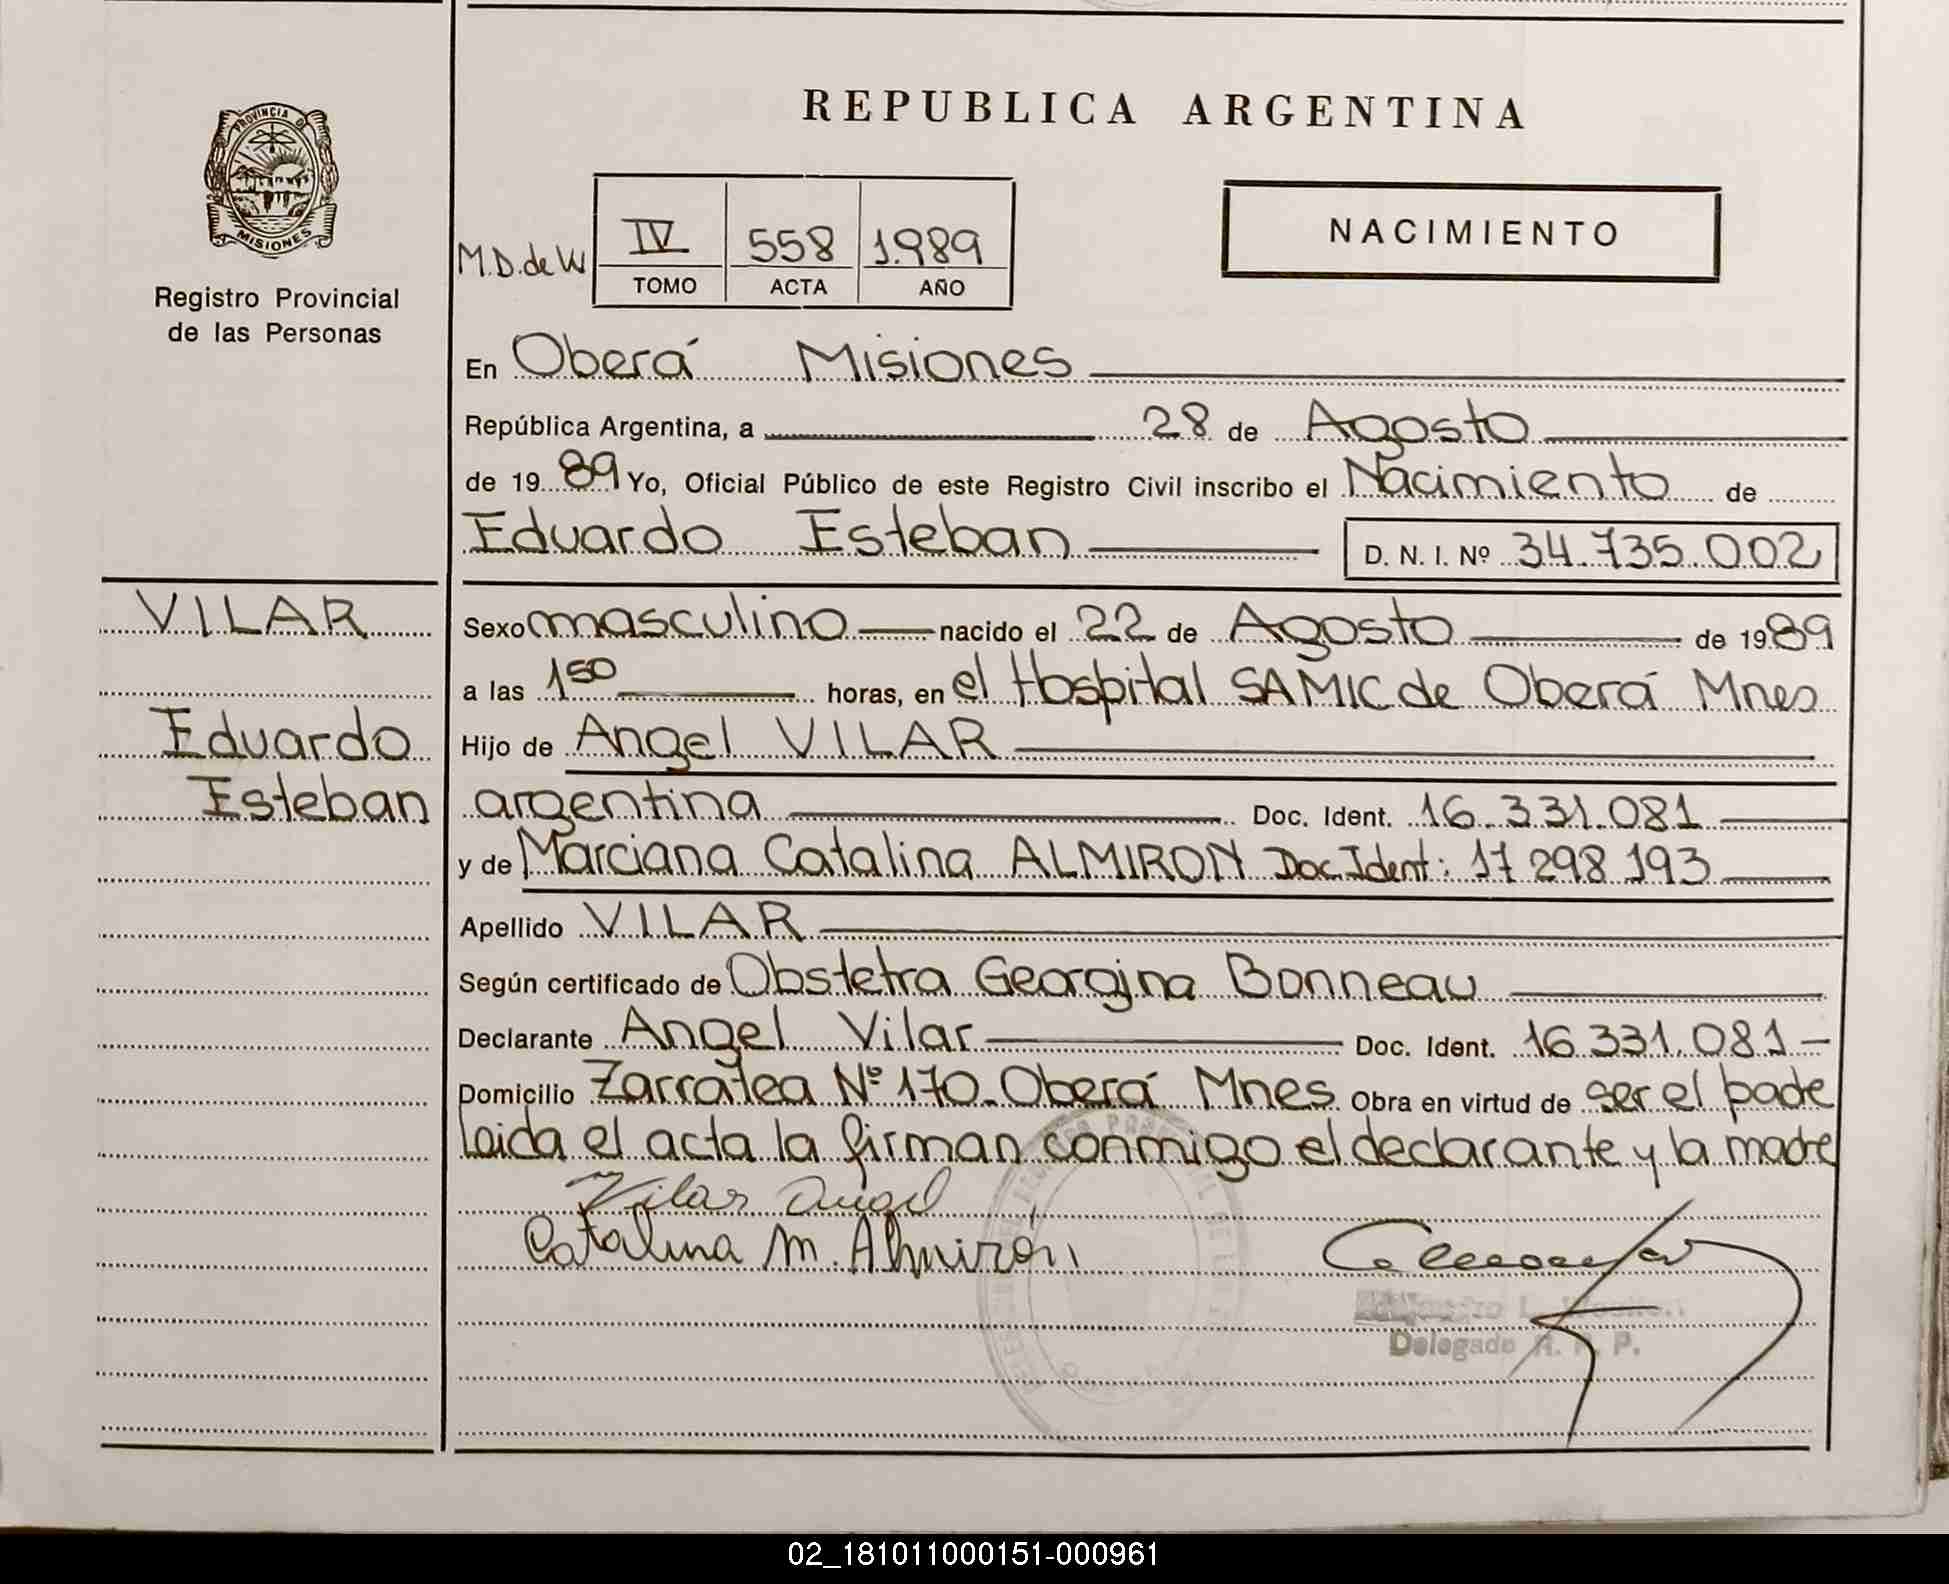 REPUBLICA ARGENTINA
PROVINCIA DE
MISIONES
Registro Provincial
de las Personas
M.D.deW
IV 558 1.989
TOMO ACTA AÑO
NACIMIENTO
En Oberá Misiones
República Argentina, a 28 de Agosto
de 1989 Yo, Oficial Público de este Registro Civil inscribo el Nacimiento de
Eduardo Esteban D. N. I. Nº 34.735.002
VILAR
Eduardo
Esteban
Sexo masculino nacido el 22 de Agosto de 1989
a las 1 50 horas, en el Hospital SAMIC de Oberá Mnes
Hijo de Angel VILAR
argentina Doc. Ident. 16.331.081
y de Marciana Catalina ALMIRON Doc Ident: 17 298 193
Apellido VILAR
Según certificado de Obstetra Georgina Bonneau
Declarante Angel Vilar Doc. Ident. 16.331.081-
Domicilio Zarratea Nº 170-Oberá Mnes Obra en virtud de ser el padre
Leida el acta la firman conmigo el declarante y la madre
Vilar Angel
Catalina M. Almirón
Delegado R. P. P.
02_181011000151-000961